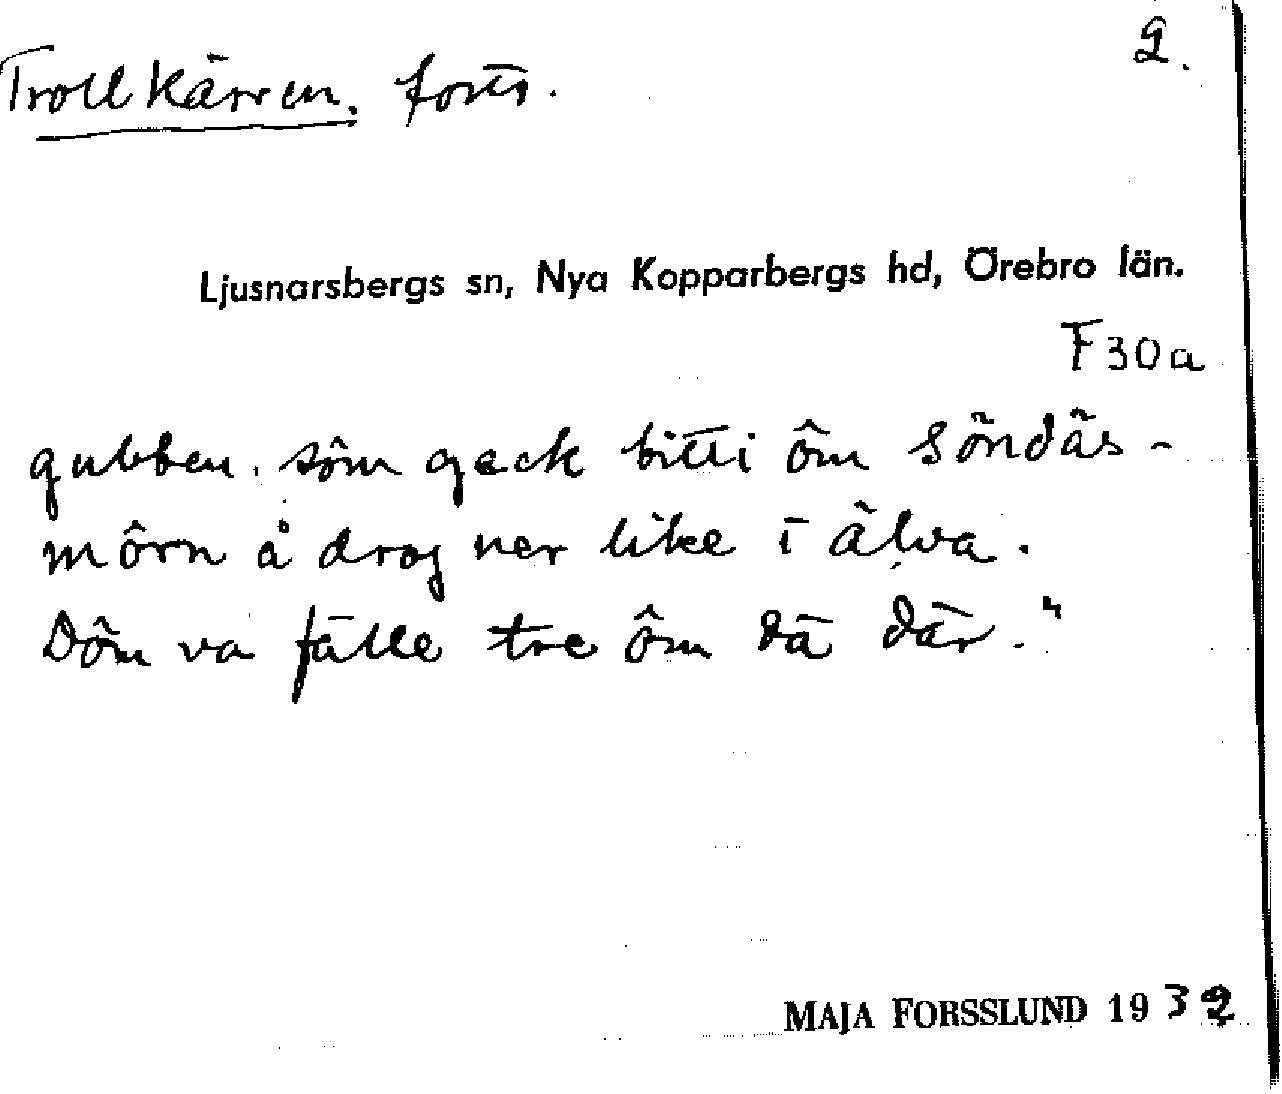 2.
Trollkärren. forts.
Ljusnarsbergs sn, Nya Kopparbergs hd, Örebro län.
F30a
gubben. sôm geck bitti ôm söndäs-
môrn å drog ner like i älva.
Dôm va fälle tre ôm dä där."
MAJA FORSSLUND 1932